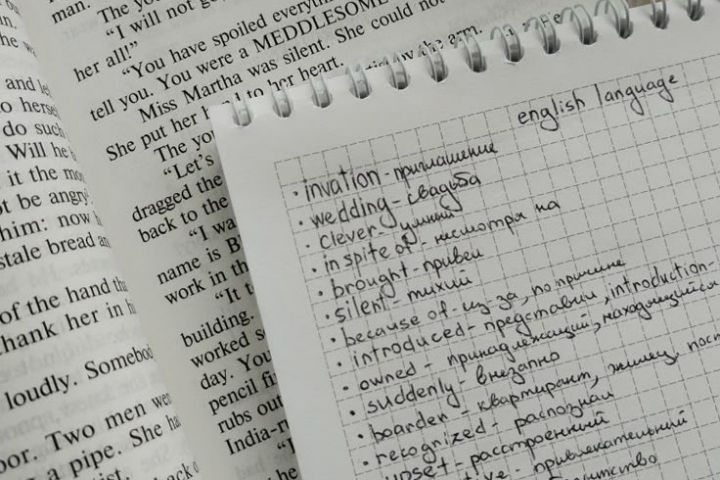 man.
The yo
"I will not ge
her all!"
"You have spoiled everyth
tell you. You were a MEDDLESOME
Miss Martha was silent. She could not
She put her h to her heart.
The yo
"Let's
dragged the
back to the
"I wa
name is B
work in th
"It t
building.
worked s
day. You
pencil fi
rubs out
India-r
he
and le
o herse
do such
Will he
it the mo
ot be angry
him: now h
stale bread an
of the hand th
hank her in h
loudly. Somebo
oor. Two men we
a pipe. She ha
english language
· invation - приглашение
· wedding - свадьба
· clever - умный
· in spite of - несмотря на
· brought - привёл
· silent - тихий
· because of - из-за, по причине
· introduced - представил, introduction -
· owned - принадлежащий, находящийся
· suddenly - внезапно
· boarder - квартирант, жилец, пост
· recognized - распознал
upset - расстроенный
tive - привлекательный